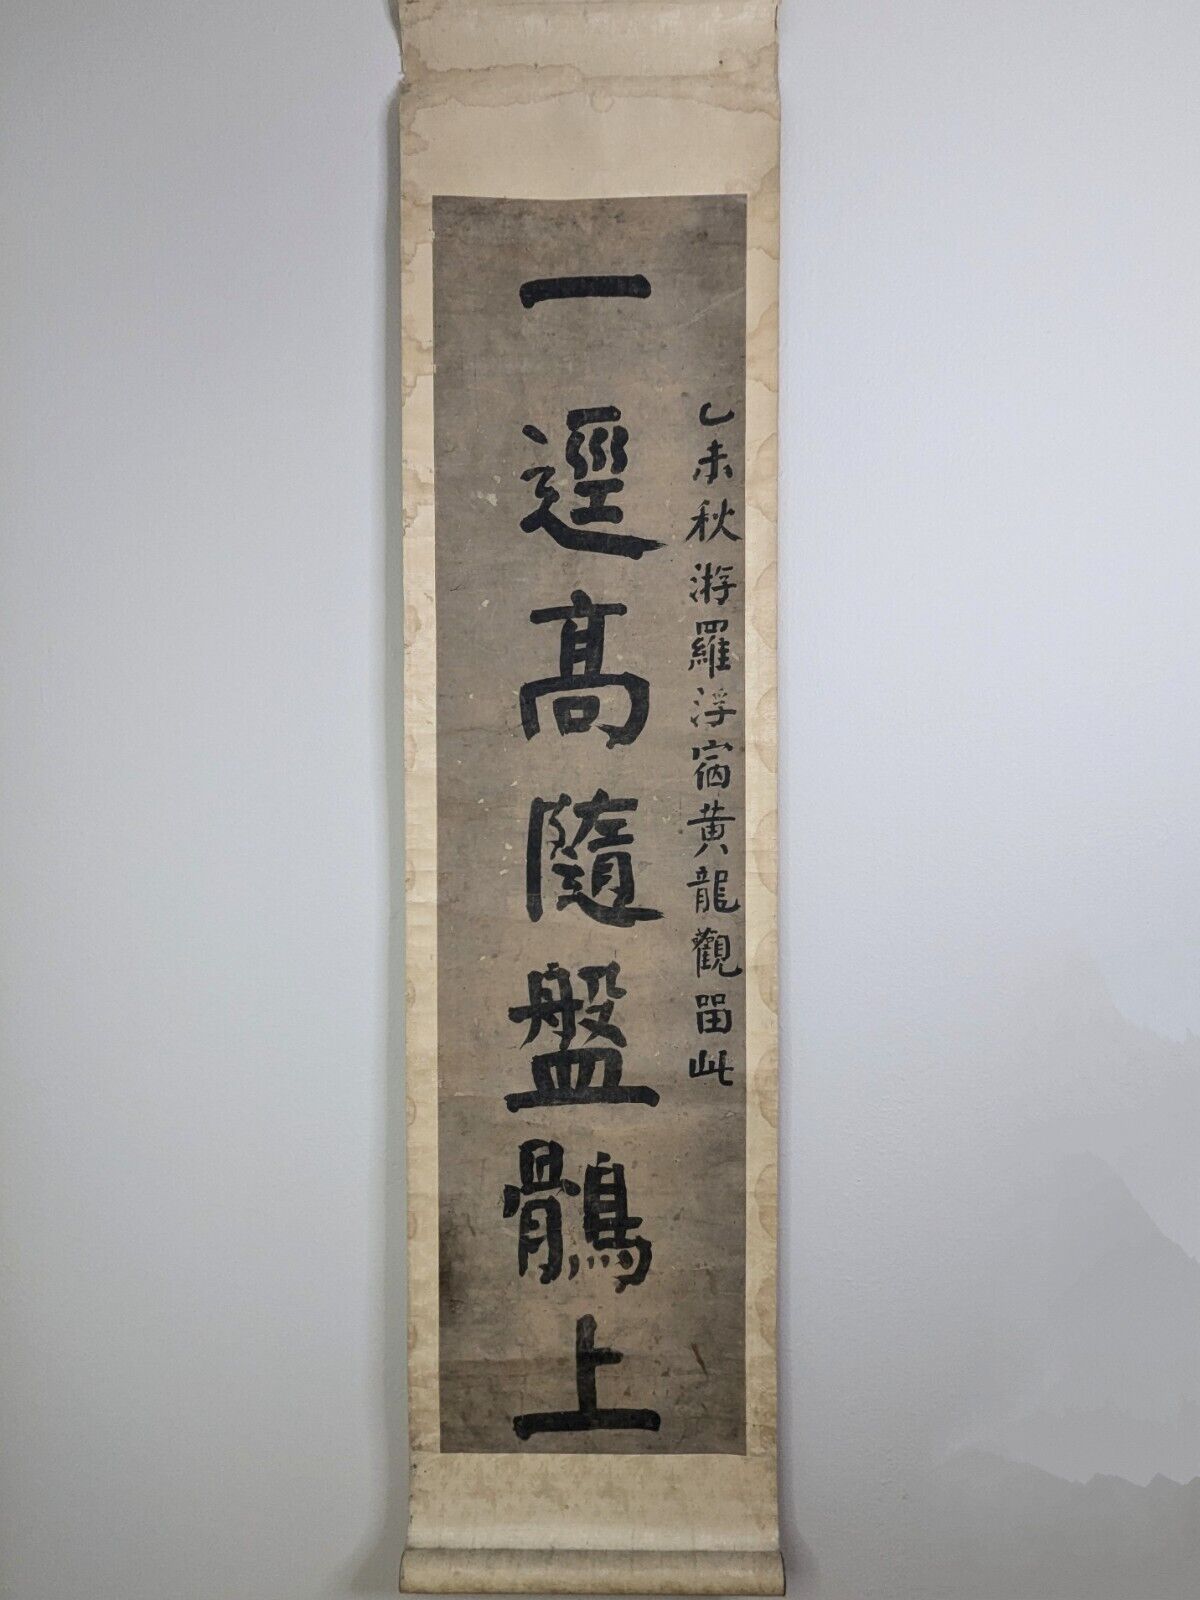 乙未秋游羅浮宿黄龍觀留此
一逕高隨盤鶻上